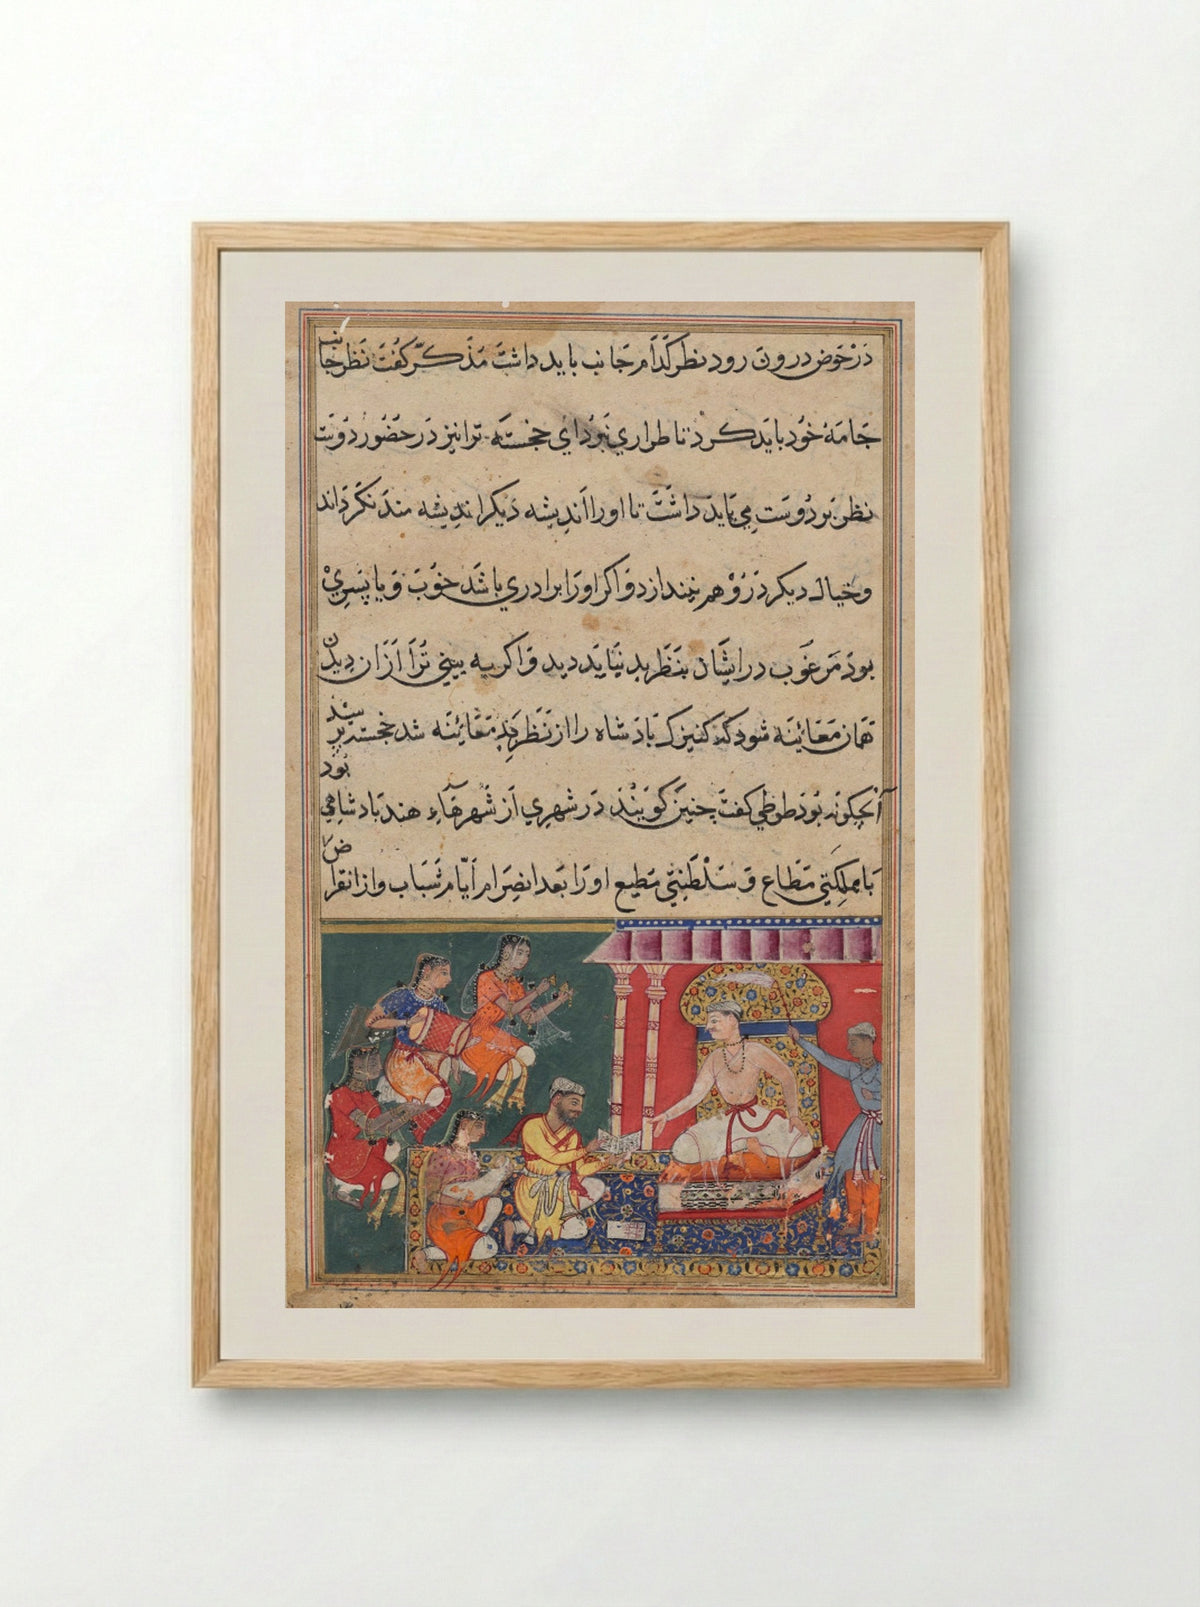 درحوض درون رود نظر کدام جانب باید داشت مذکر گفت نظر جانب
جامهٔ خود باید کرد تا طراری نبود ای خجسته ترا نیز در حضور دوست
نظر بر دوست می باید داشت تا او را اندیشه دیکر اندیشه مند نکرداند
و خیال دیکر در وهم نیندازد و اکر او را برادری باشد خوب و یا پسری
بود مرغوب در ایشان بنظر بد نباید دید و اکر به بینی ترا از ان دیدن
همان معائینه شود که کنیزک بادشاه را از نظر بد معائینه شد خجسته پرسید
آنچکونه بود طوطی کفت چنین کویند در شهری از شهرهاء هند بادشاهی بود
با مملکتی مطاع و سلطنتی مطیع او را بعد انصرام ایام شباب و از انقراض